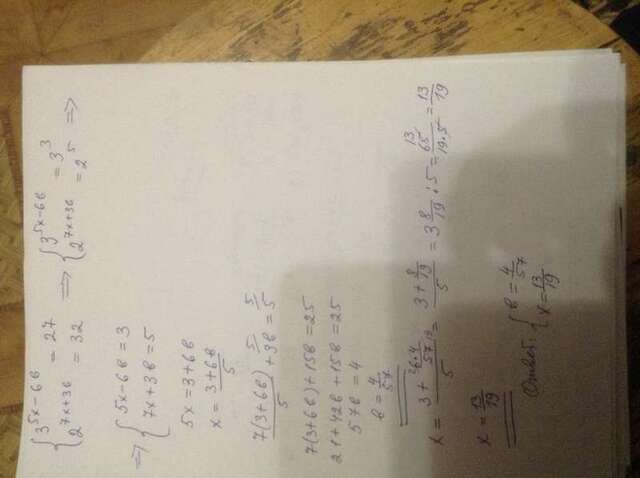 { 3^(5x-6b) = 27 => { 3^(5x-6b) = 3^3
{ 2^(7x+3b) = 32 { 2^(7x+3b) = 2^5 =>
=> { 5x-6b=3
{ 7x+3b=5
5x=3+6b
x = (3+6b)/5
7(3+6b)/5 + 3b^(5/ = 5^(5/ /5
7(3+6b)+15b=25
21+42b+15b=25
57b=4
b=4/57
x = (3+ 6·4/57)/5 = (3+8/19)/5 = 3 8/19 : 5 = 65/(19·5) = 13/19
x = 13/19
Ответ: { b=4/57
{ x=13/19